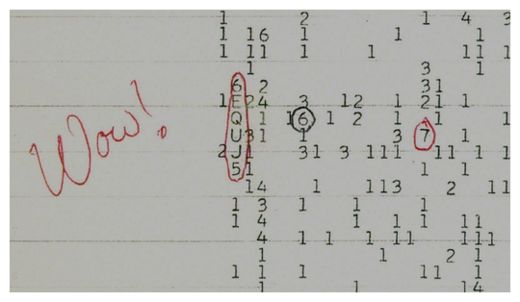 1 2 1 4 3
1 16 1 1 1
1 11 1 1 11 1
1 3 1
6 2 31
E 24 3 12 1 21 1
Q 1 16 1 2 1 1 1
U 31 1 3 7
Wow!
2 J 1 31 3 111 11 1 1
5 1 1 1
14 1 113 2 11
1 3 1 1 1
1 4 1 1 1 11
4 1 1 1 11 111
1 1 2 1
1 1 1 11 1
1 1 14